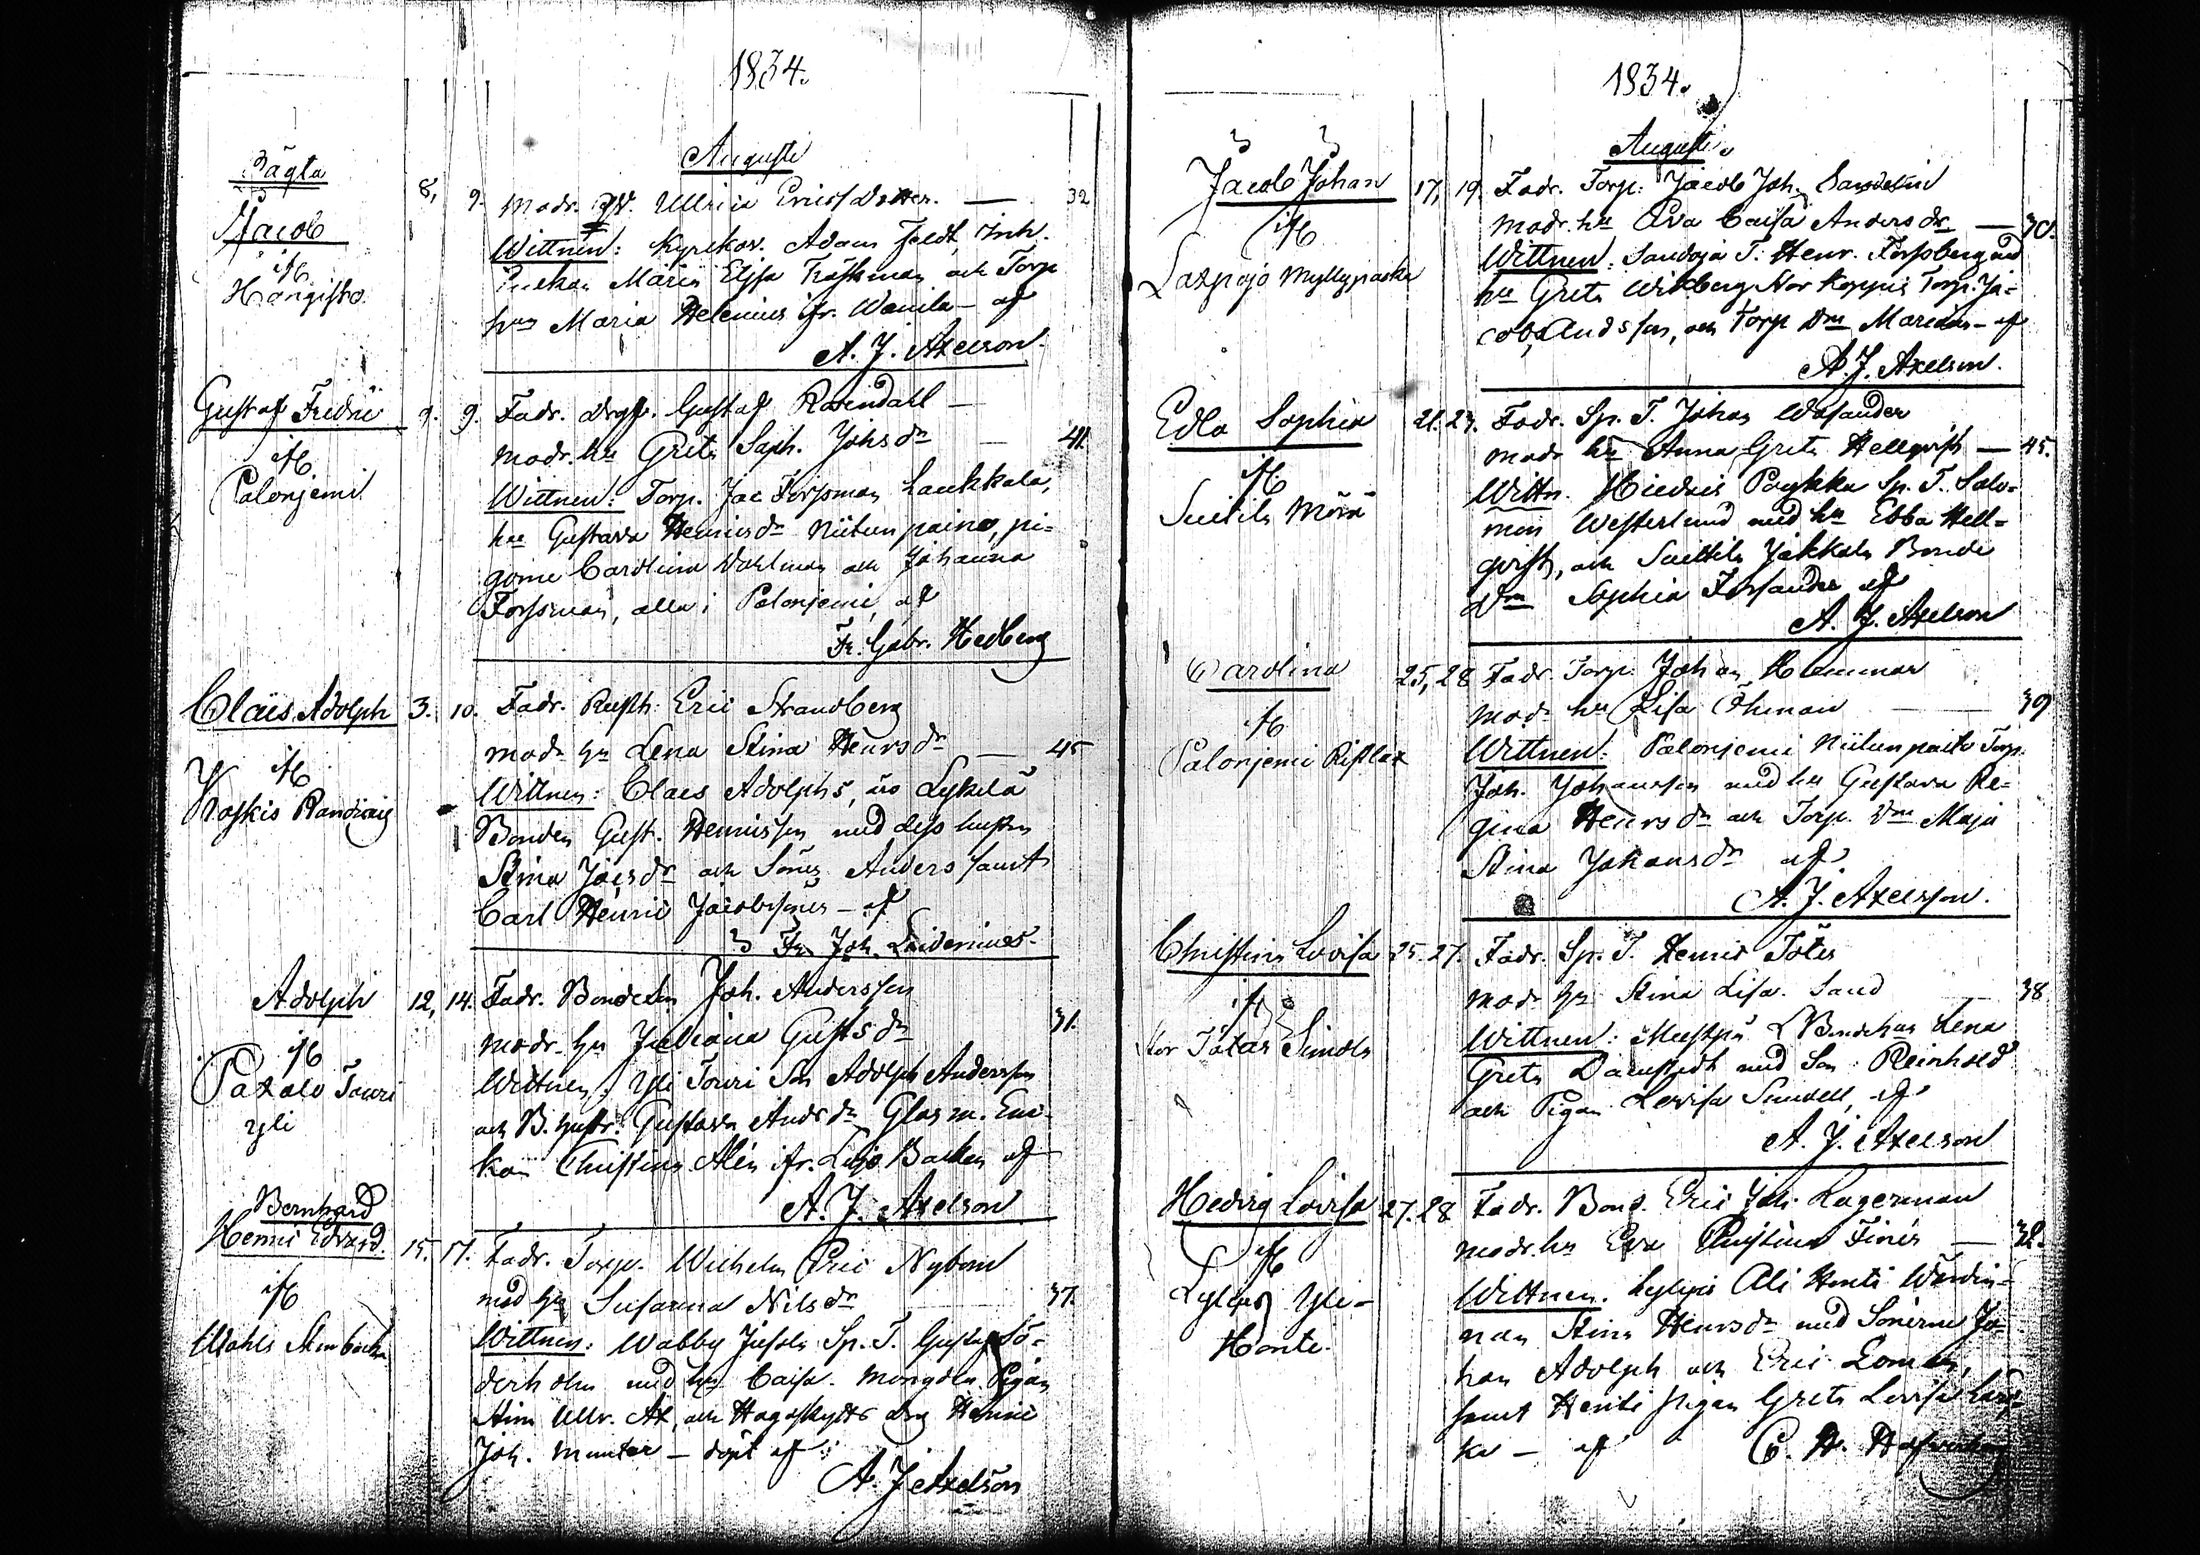 1834.
Augusti
Oägta
Jacob
if
Hangisto.
8, 9. Modr. Ullrica Ericsdotter. — 32
Wittnen: Kyrkov. Adam Feldt, Inh.
Maria Elisa Träskman och Torp
hun Maria Helenius ifr. Wanila — af
A. J. Axelson.
Gustaf Fredric
if
Palonjemi
9. 9. Fadr. Gustaf Rosendahl —
modr. hu Greta Soph. Johsdr — 41.
Wittnen: Torp. Jac Forssman Laukkala,
hu Gustava Henricsdr Niitunpaino, pi-
gorne Carolina Dahlman och Johanna
Forssman, alla i Palonjemi, af
Fr. Gabr. Hedberg
Claës Adolph
if
Koskis
3. 10. Fadr. Rusth. Eric Strandberg
modr hu Lena Stina Henrsdr — 45
Wittnen: Claes Adolphs, Lykelä
Bonden Gust. Henricsson med dess hustru
Stina Jacsdr och Söner Anders samt
Carl Henric Jacobssöner — af
Joh.
Adolph
if
Paxalo Touri
yli
12, 14. Fadr. Bonden Joh. Andersson
modr. hu Juliana Gustsdr 31.
Wittnen: Yli Touri Son Adolph Andersson
och B. hustr. Gustava Andsdr Glasm. En-
kan Christina Alén ifr. Lojo Backen af
A. J. Axelson
Bernhard
Henric Edvard.
if
Wohls Stenbacka
15. 17. Fadr. Torp. Wilhelm Eric Nybom
mod hu Susanna Nilsdr 37.
Wittnen: Wabby Sp. T. Gustaf Sö-
derholm med hu Caisa. Mongola Pigan
Stina Ullr. Ax, och Hagaskytts drg Henric
Joh. Munter — döpt af
A. J Axelson
1834.
Augusti.
Jacob Johan
if
Laxpojo Myllypaska
17, 19. Fadr. Torp. Jacob Joh. Sandelin
modr. hu Eva Caisa Andersdr — 30.
Wittnen: Sandoja T. Henr. Forssberg med
hu Greta Wikberg Nor Koppis Torp. Ja-
cob Andsson, och Torp Dm Marian — af
A. J. Axelson.
Edla Sophia
if
Suitila Mörä
21. 23. Fadr. Sp. T. Johan Wasander
modr hu Anna Greta Hellqvist — 45.
Wittn. Hiedais Poykka Sp. T. Salo-
mon Westerlund med hu Ebba Hell-
qvist, och Suittila Jakkola Bonde
Dm Sophia Forsander af
A. J. Axelson
Carolina
if
Palonjemi Ristlax
25, 28 Fadr. Torp. Johan Hammar
modr hu Lisa Öhman — 39
Wittnen: Palonjemi Niitunpaino Torp.
Joh. Johansson med hu Gustava Re-
gina Henrsdr och Torp. Dm Maja
Stina Johansdr af
A. J. Axelsson.
Christina Lovisa
if
Nor Totas Simola
25. 27. Fadr. Sp. T. Henric Totes
modr hu Stina Lisa Sand 38
Wittnen: Bondehus Lena
Greta Damstedt med Son Reinhold
och Pigan Lovisa Sundell, af
A. J. Axelson
Hedvig Lovisa
if
Lylyis Yli-
Honte.
27. 28 Fadr. Bond. Eric Joh. Lagerman
modr. hu Eva Christina Finér — 32.
Wittnen. Lylyis Ali Honti Wärdin-
nan Stina Henrsdr med Sönerne Jo-
han Adolph och Eric Loman,
samt Henti pigan Greta Lovisa
— af C. H.